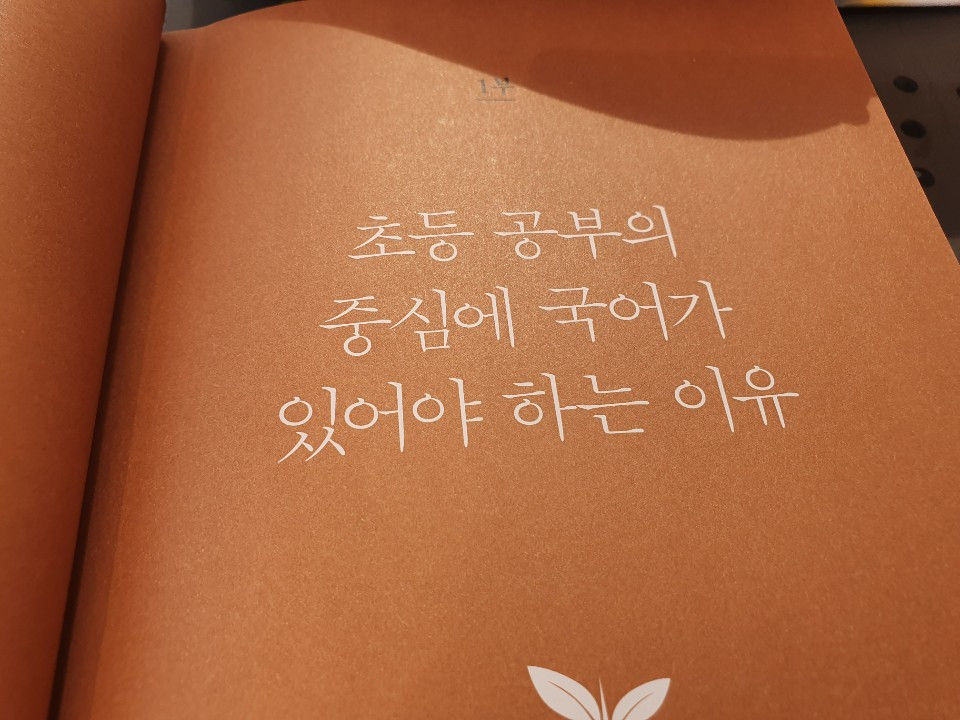 1부
초등 공부의
중심에 국어가
있어야 하는 이유